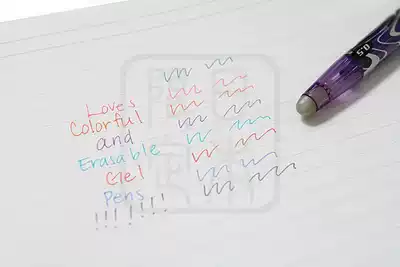 Loves
Colorful
and
Erasable
Gel
Pens
!!! !!!!
0.5